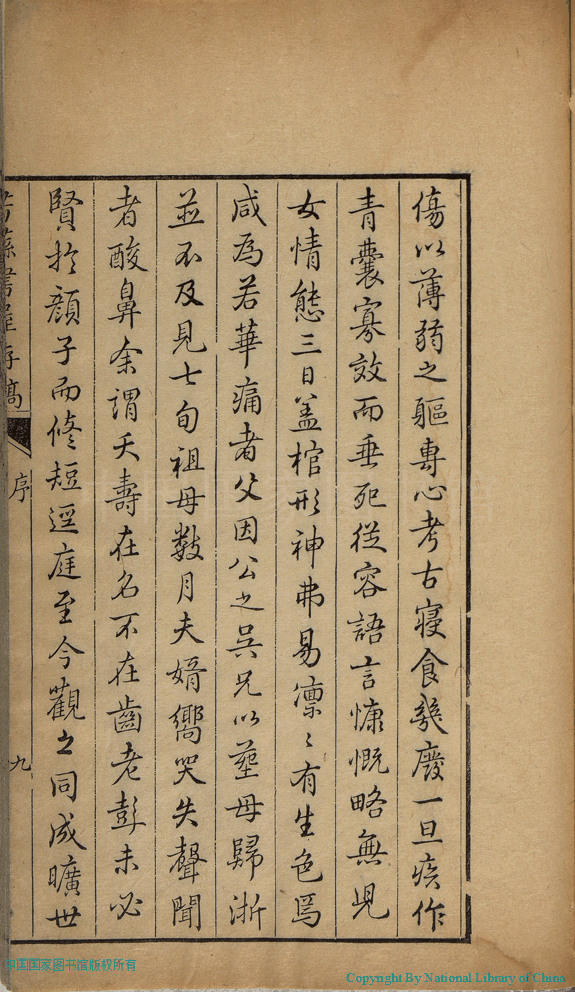 傷以薄弱之軀專心考古寢食幾廢一旦疾作
青囊寡效而垂死從容語言慷慨略無兒
女情態三日盖棺形神弗易凛〻有生色焉
咸為若華痛者父因公之吳兄以塟母歸浙
並不及見七旬祖母數月夫婿嚮哭失聲聞
者酸鼻余謂夭壽在名不在齒老彭未必
賢於顔子而修短逕庭至今觀之同成曠世
序
九
中国国家图书馆版权所有
Copyright By National Library of China